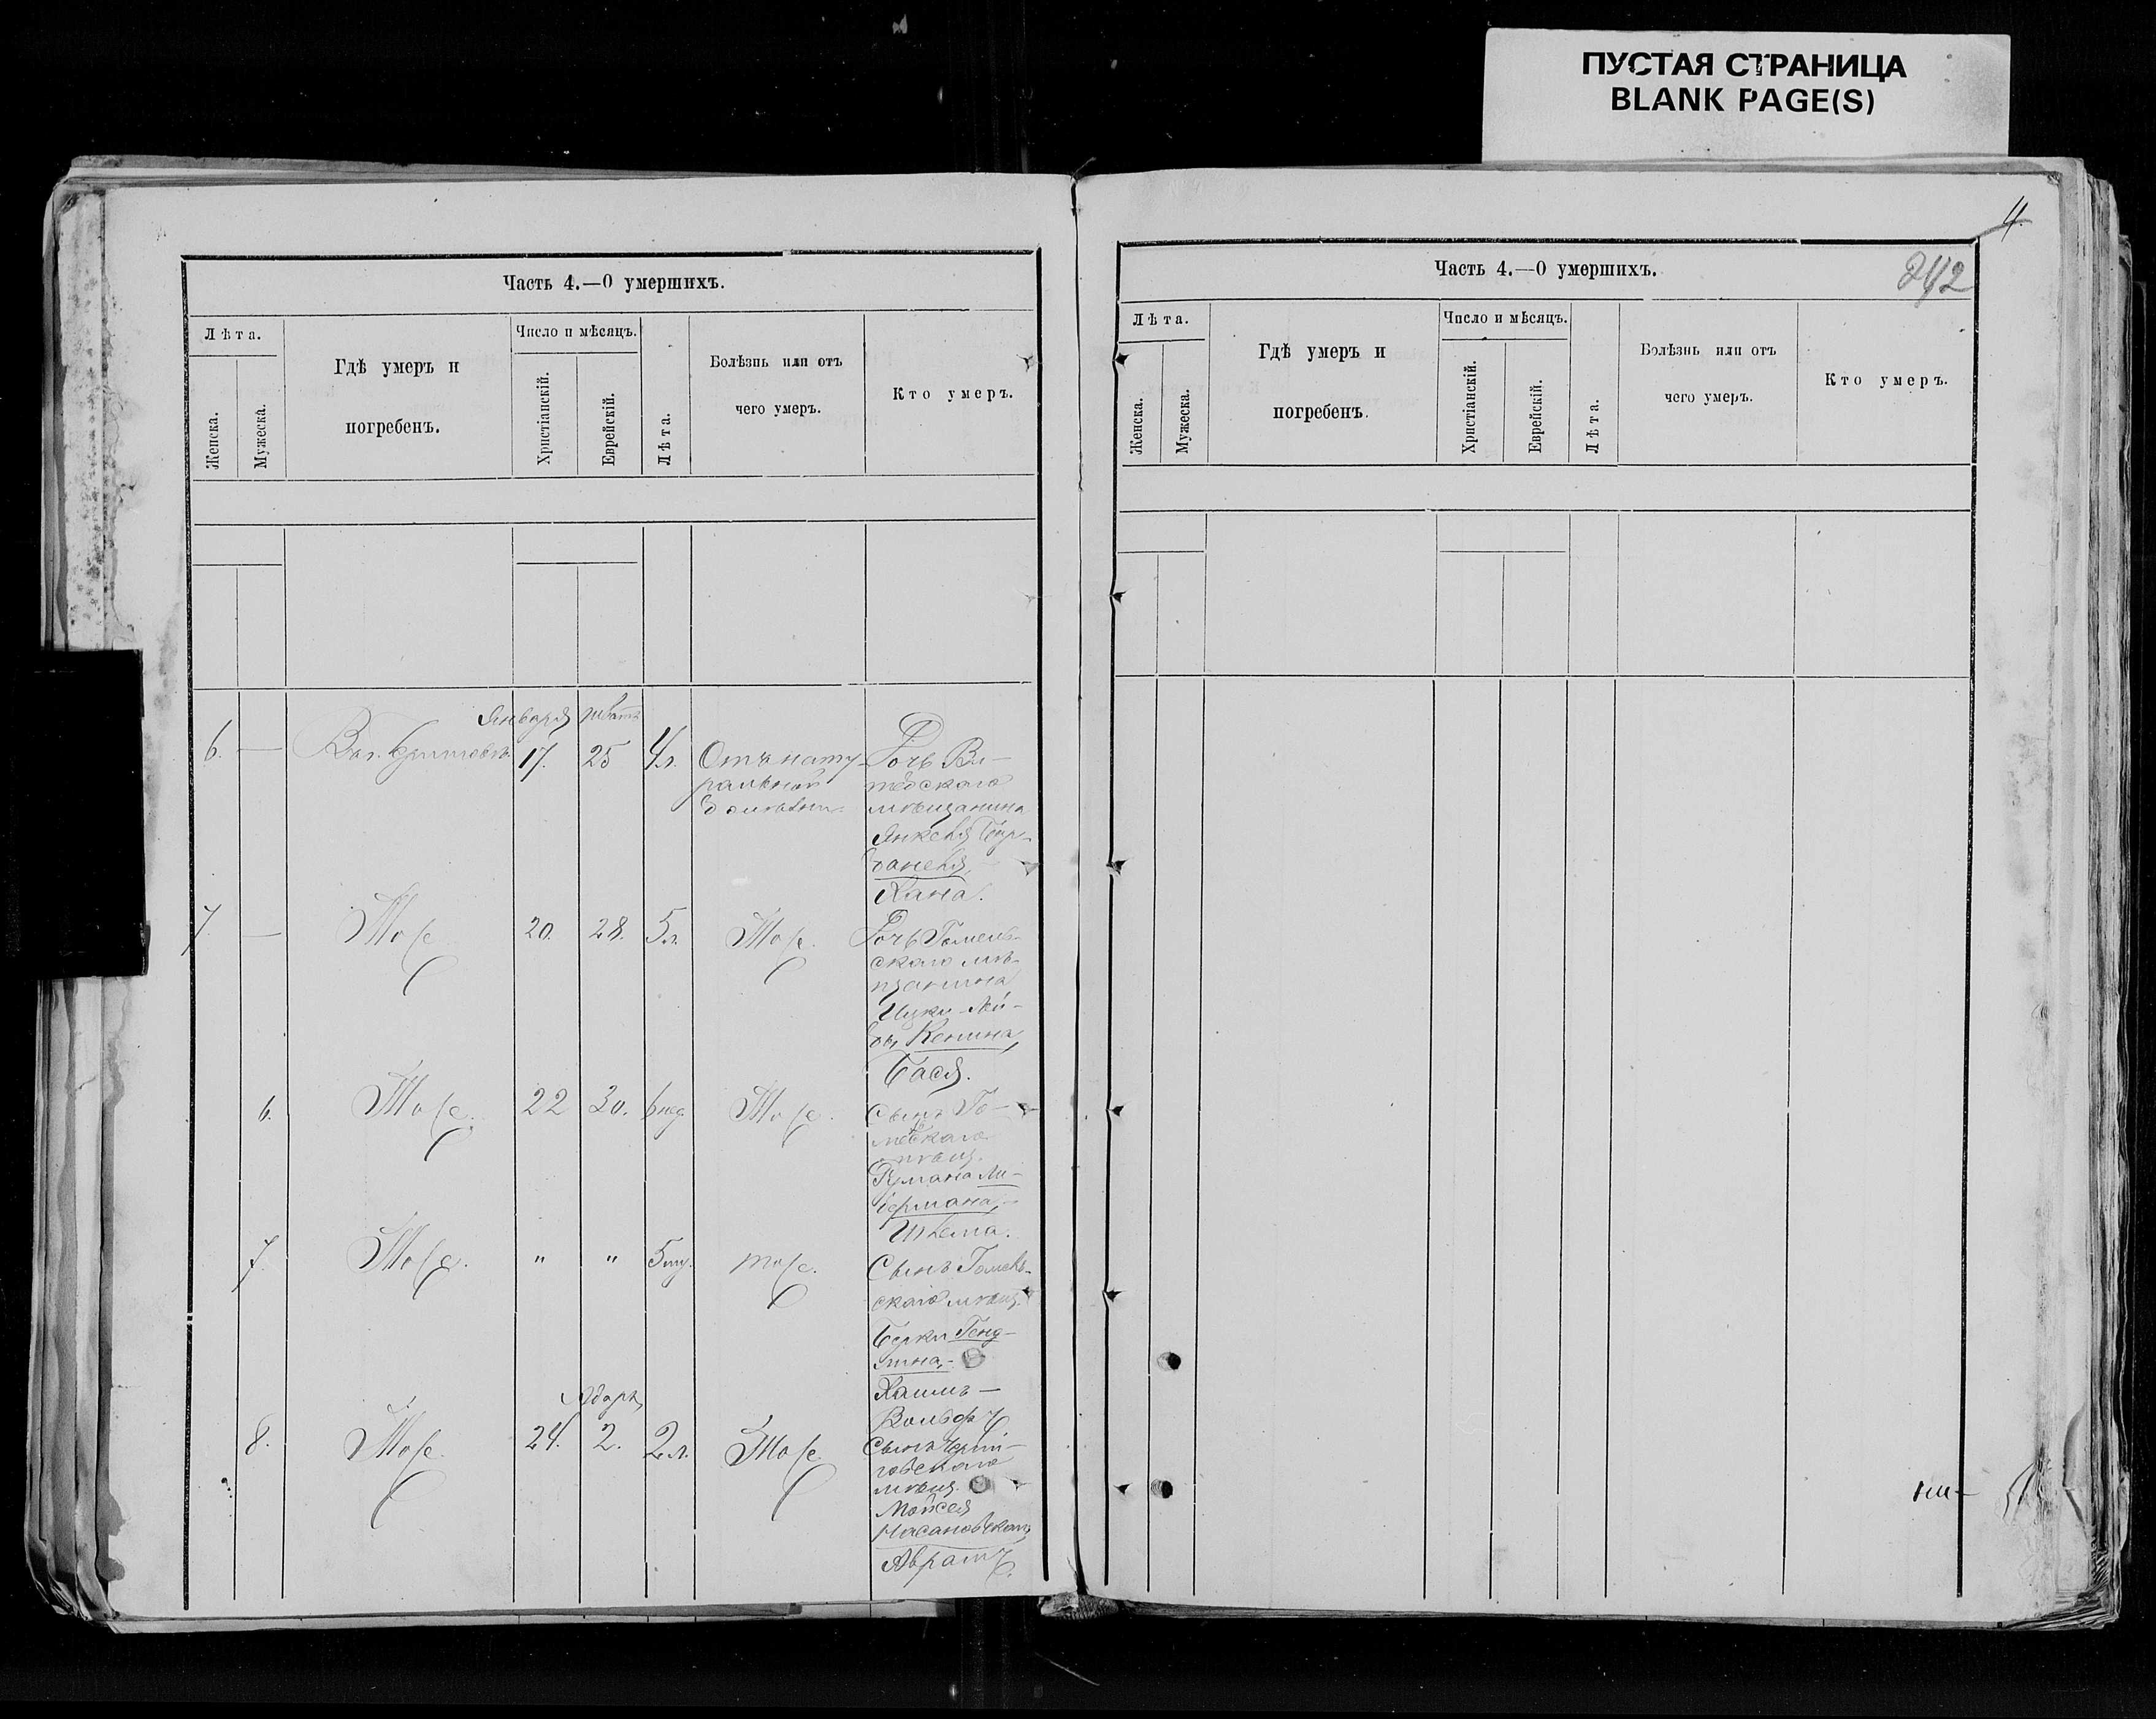 ПУСТАЯ СТРАНИЦА
BLANK PAGE(S)
Часть 4.—О умершихъ.
Лѣта.
Женска.
Мужеска.
Гдѣ умеръ и
погребенъ.
Число и мѣсяцъ.
Христіанскій.
Еврейскій.
Лѣта.
Болѣзнь или отъ
чего умеръ.
Кто умеръ.
Января
6. — 17. 25 4 л. Отъ нату-
ральной
болѣзни
Дочь Ви-
тебскаго
мѣщанина
Янкеля
Хана.
7. — Тоже 20. 28. 5 л. Тоже. Дочь Гомель-
скаго мѣ-
щанина
Ицки-Лей-
бы Кенина,
Бася.
6. Тоже. 22 30. 6 нед Тоже. Сынъ Го-
мельскаго
мѣщ.
Ли-
бермана,
Шлема.
7. Тоже. " " 5 тоже. Сынъ Гомель-
скаго мѣщ.
Берки Генд-
лина,-
Хаимъ-
Вольфъ
Адаръ
8. Тоже. 24. 2. 2 л. Тоже Сынъ Черни-
говскаго
мѣщ.
Мойсея
Насановскаго,
Аврамъ.
4.
Часть 4.—О умершихъ.
242
Лѣта.
Женска.
Мужеска.
Гдѣ умеръ и
погребенъ.
Число и мѣсяцъ.
Христіанскій.
Еврейскій.
Лѣта.
Болѣзнь или отъ
чего умеръ.
Кто умеръ.